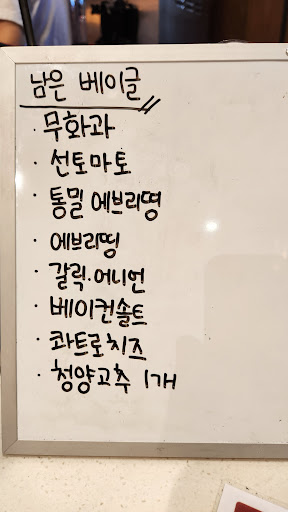 남은 베이글
· 무화과
· 선토마토
· 통밀 에브리띵
· 에브리띵
· 갈릭·어니언
· 베이컨솔트
· 콰트로치즈
· 청양고추 1개